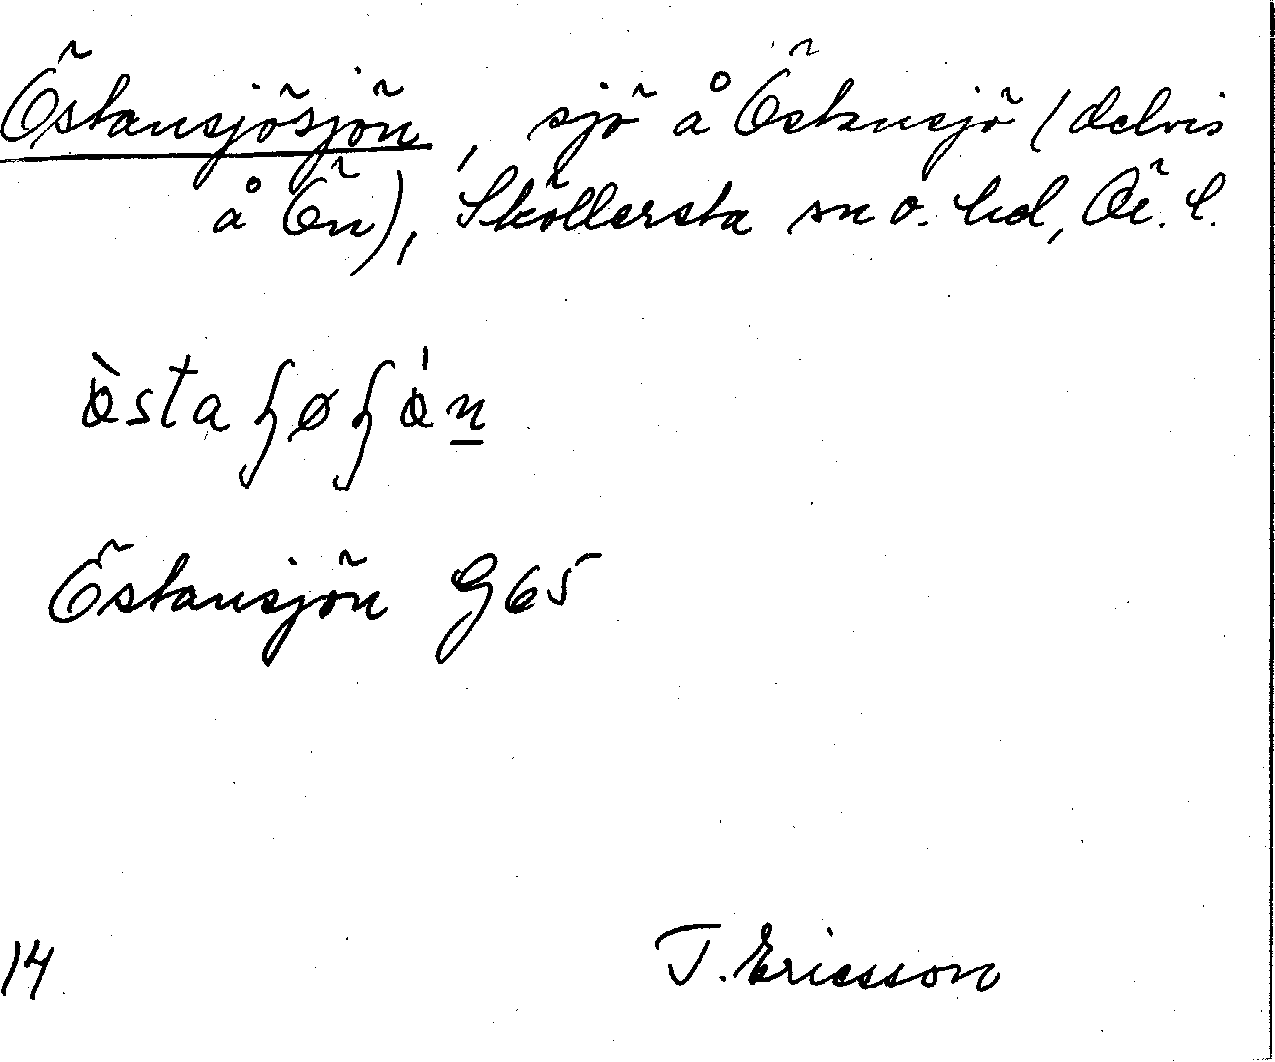 Östansjösjön, sjö å Östansjö (delvis
å Ön), Sköllersta sn o. hd, Ör. l.
Östansjön G65
14
T. Ericsson